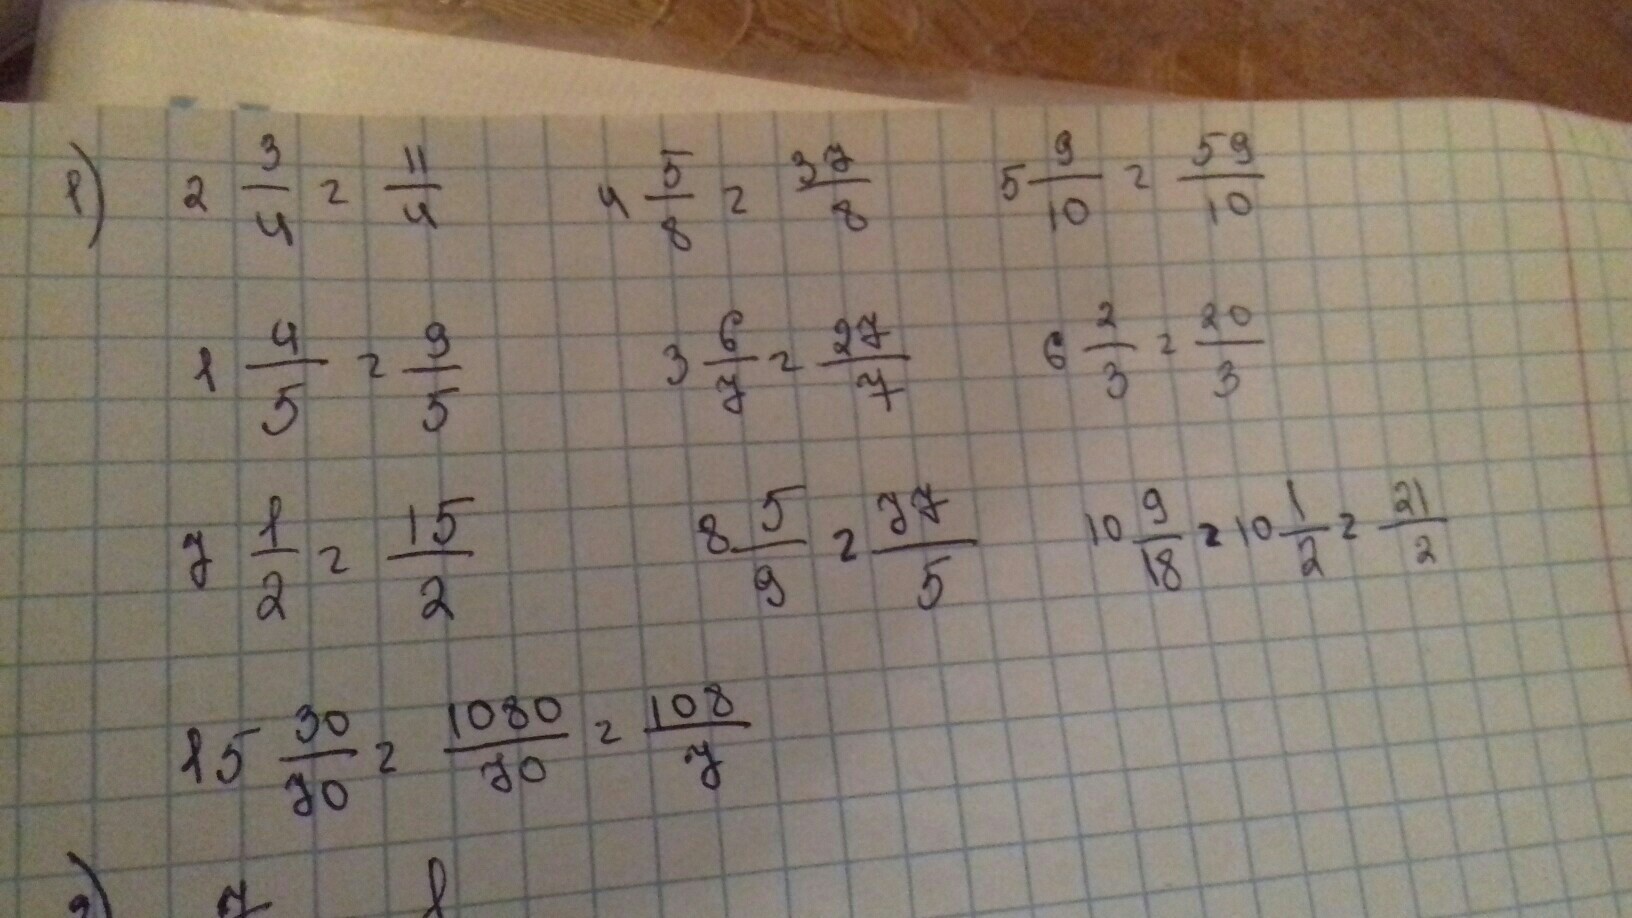 1) 2 3/4 = 11/4 4 5/8 = 37/8 5 9/10 = 59/10
1 4/5 = 9/5 3 6/7 = 27/7 6 2/3 = 20/3
7 1/2 = 15/2 8 5/9 = 77/5 10 9/18 = 10 1/2 = 21/2
15 30/70 = 1080/70 = 108/7
2) 7 1